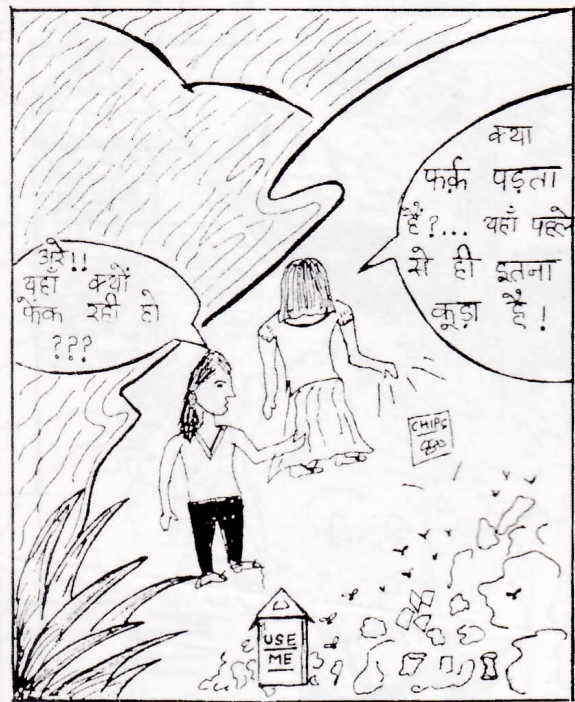 अरे!!
यहाँ क्यों
फेंक रही हो
???
क्या
फर्क़ पड़ता
है?... यहाँ पहले
से ही इतना
कूड़ा है!
CHIPS
USE
ME